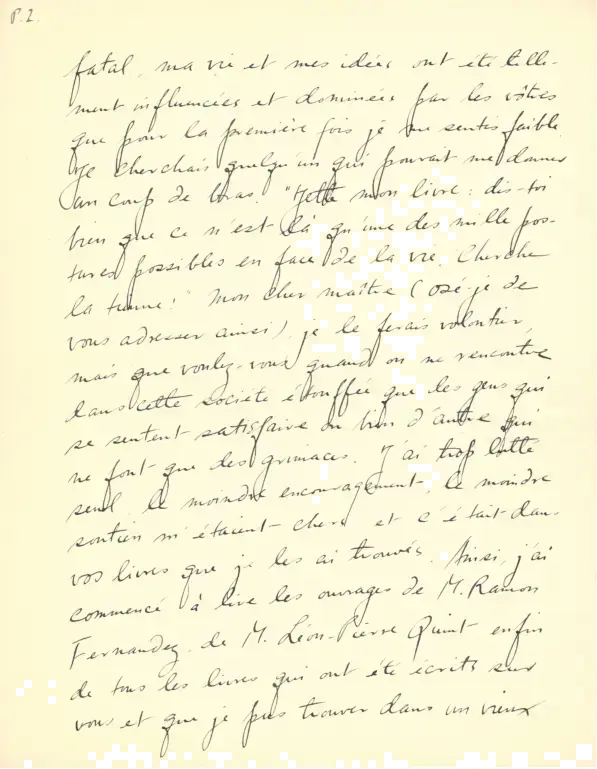 P.2.
fatal, ma vie et mes idées ont été telle-
ment influencées et dominées par les vôtres
que pour la première fois je me sentis faible.
Je cherchais quelqu'un qui pouvait me donner
un coup de bras. "Jette mon livre : dis-toi
bien que ce n'est là qu'une des mille pos-
tures possibles en face de la vie. Cherche
la tienne!" Mon cher maître (osé-je de
vous adresser ainsi), je le ferais volontier,
mais que voulez-vous quand on ne rencontre
dans cette société étouffée que les gens qui
se sentent satisfaire ou bien d'autre qui
ne font que des grimaces. J'ai trop lutté
seul, le moindre encouragement, le moindre
soutien m'étaient chers et c'était dans
vos livres que je les ai trouvés. Ainsi, j'ai
commencé à lire les ouvrages de M. Ramon
Fernandez, de M. Léon-Pierre Quint enfin
de tous les livres qui ont été écrits sur
vous et que je pus trouver dans un vieux